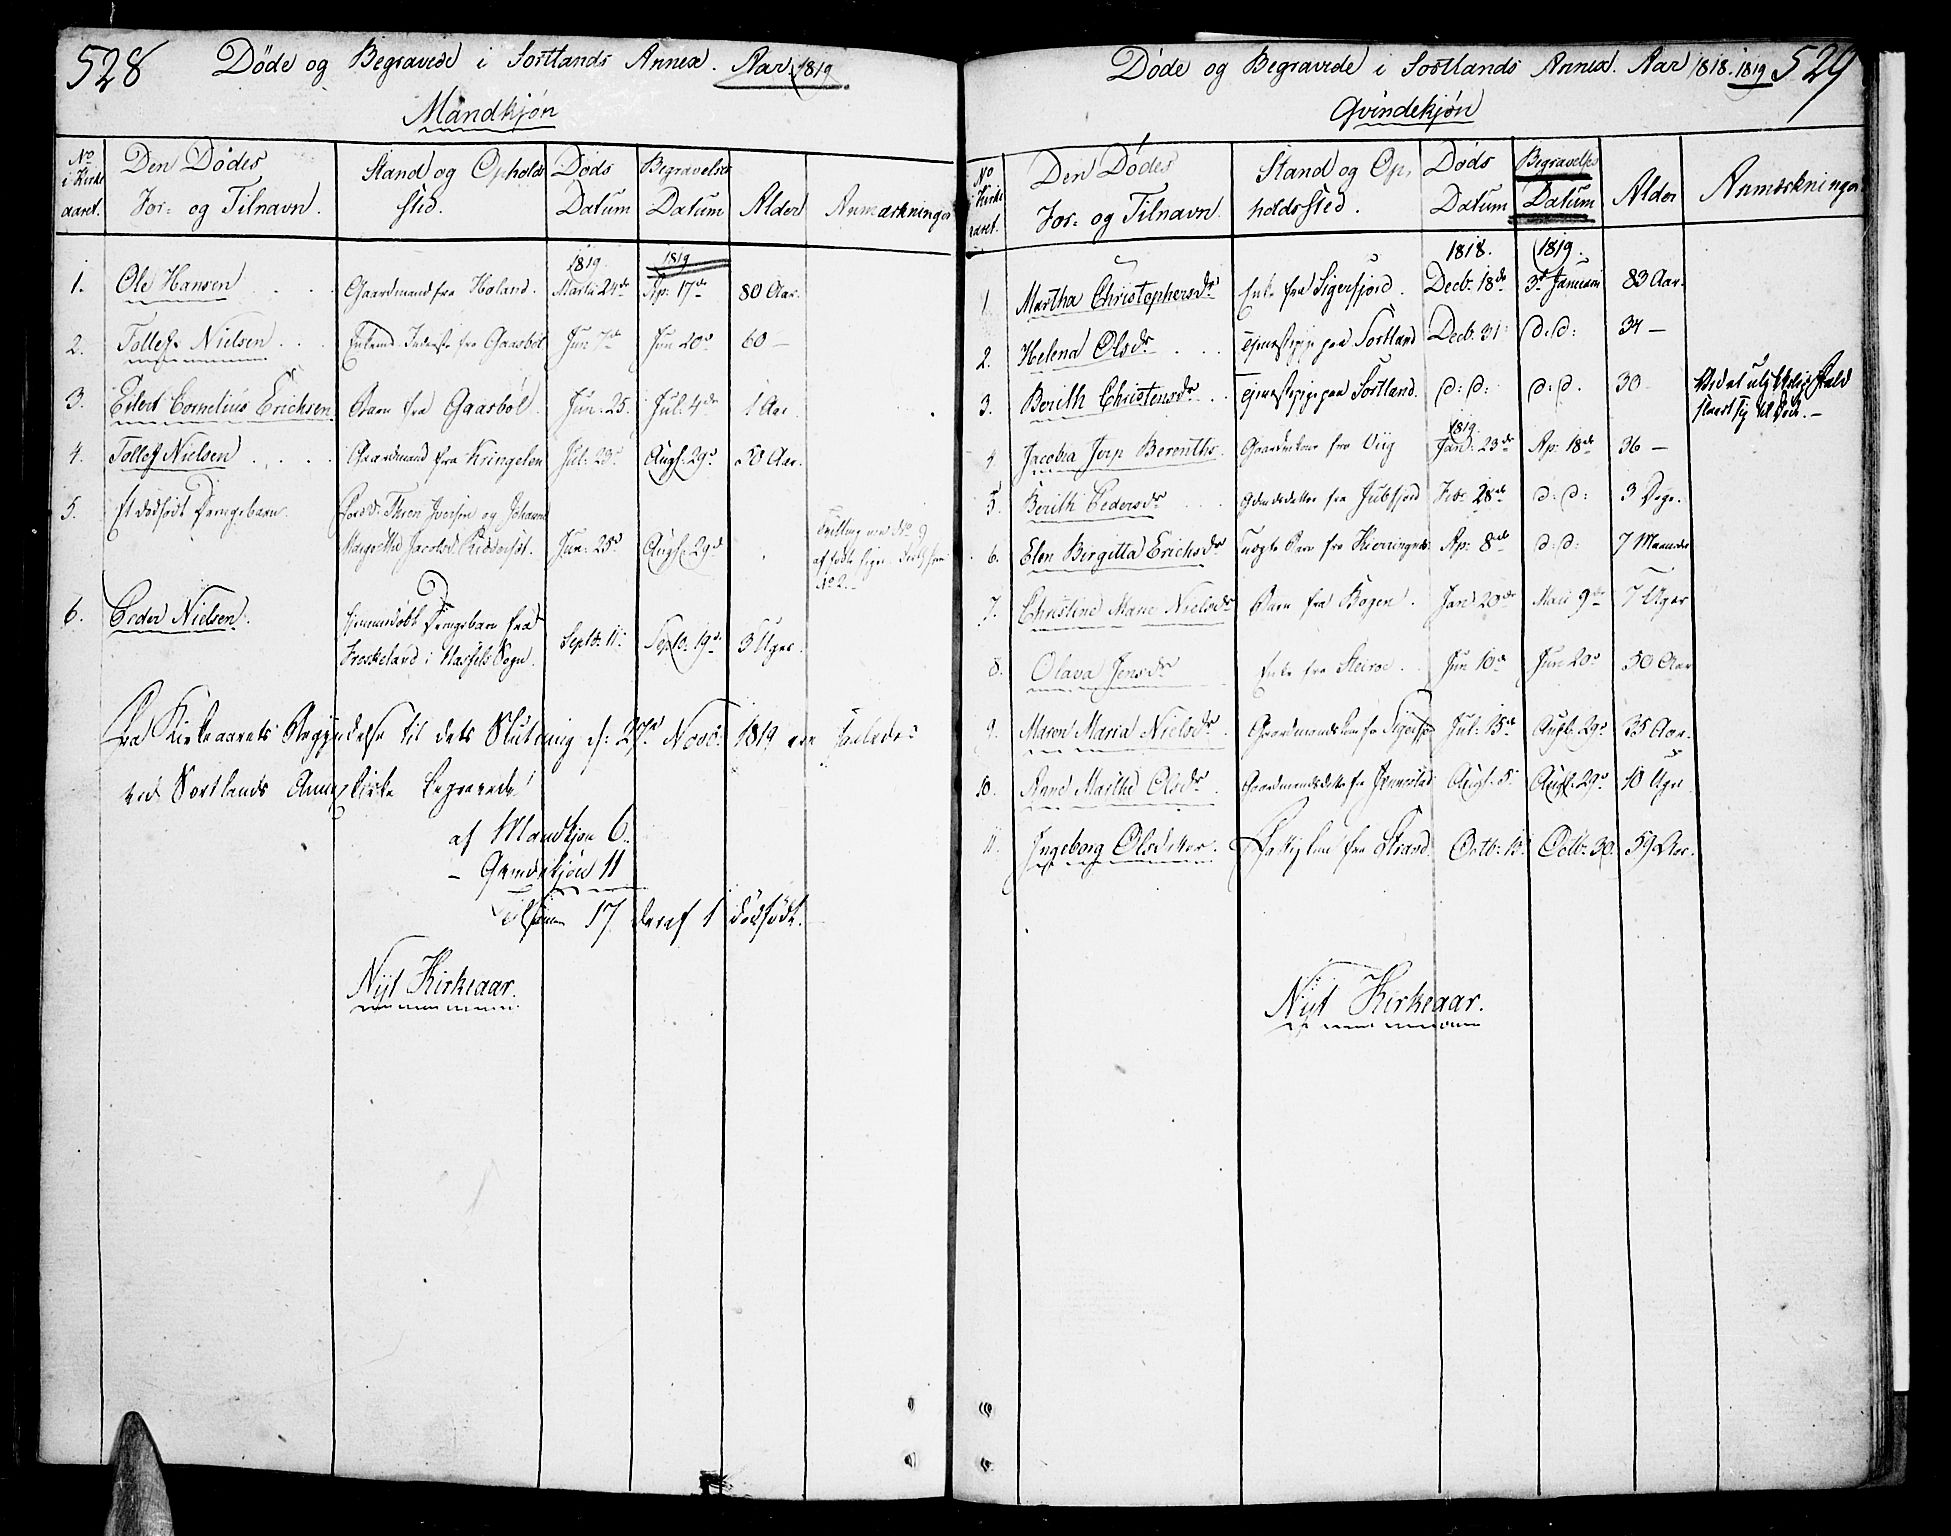 528 Døde og Begravede i Sortlands Annex. Aar 1819
Mandkjøn
No i Kirkeaaret. Den Dødes For- og Tilnavn. Stand og Opholdssted. Døds Datum Begravelses Datum Alder Anmærkninger
1819 1819
1. Ole Hansen Gaardmand fra Holand. Martii 24de Ap: 17de 80 Aar.
2. Tollef Nielsen Enkemd. Inderste fra Gaasbøl Jun 7de Jun 20de 60 —
3. Eilert Cornelius Erichsen Barn fra Gaasbøl. Jun: 25. Jul: 4de 1 Aar.
4. Tollef Nielsen Gaardmand fra Kringelen Jul: 23d Augs: 29d 50 Aar.
5. Et dødfødt Drengebarn. Iversen og Johanna
Margrethe Jacobsd. Jun: 25d Augs: 29d
Tvilling med No 9
af fødte Piger
No 2.
6. Peder Nielsen. hjemmedøbt Drengebarn fra
Froskeland i Hassels Sogn. Septb: 11. Septb: 19d 3 Uger.
Fra Kirkeaarets Begyndelse til dets Slutning d: 27d Novb: 1819 ere saaledes
ved Sortlands Annexkirke begravede
af Mandkjøn 6.
— Qvindekjøn 11
Tilsammen 17 deraf 1 dødfødt.
Nyt Kirkeaar.
Døde og Begravede i Sortlands Annex. Aar 1818. 1819 529
Qvindekjøn
No i Kirkeaaret. Den Dødes For- og Tilnavn. Stand og Opholdssted. Døds Datum Begravelses Datum Alder Anmærkninger
1818. 1819.
1. Martha Christophersdr Enke fra Sigerfjord. Decb: 18de 3d Januarii 83 Aar.
2. Helena Olsdr Tjenestepige paa Sortland Decb: 31 d: d: 34 —
3. Berith Christensdr Tjenestepige paa Sortland. d: d: d: d. 30 — Ved et ulykkeligt Fald
slaaet sig til Død. —
1819.
4. Jacobia Jerp Berenths. Gaardmkone fra Viig Jan: 23de Ap: 18de 36 —
5. Berith Pedersdr Gdmdsdatter fra Jubfjord Feb: 28de d: d: 3 Dage.
6. Elen Birgitta Erichsdr uægte Barn fra Kierringnes Ap: 8de d: d: 7 Maaneder
7. Christine Marie Nielsdr Barn fra Bogen. Jan: 20de Maii 9de 7 Uger
8. Olava Jensdr Enke fra Steiroe. Jun 10de Jun 20d 50 Aar
9. Maren Maria Nielsdr. Gaardmandskone fra Sigerfjor Jul: 15de Augs: 29d 35 Aar.
10. Anne Marthe Olsdr. Gaardmandsdatter fra Jennestad Augs: 5. Augs: 29d 10 Uger.
11. Ingeborg Olsdatter. fra Strand. Octb: 10. Octb: 30. 59 Aar.
Nyt Kirkeaar.